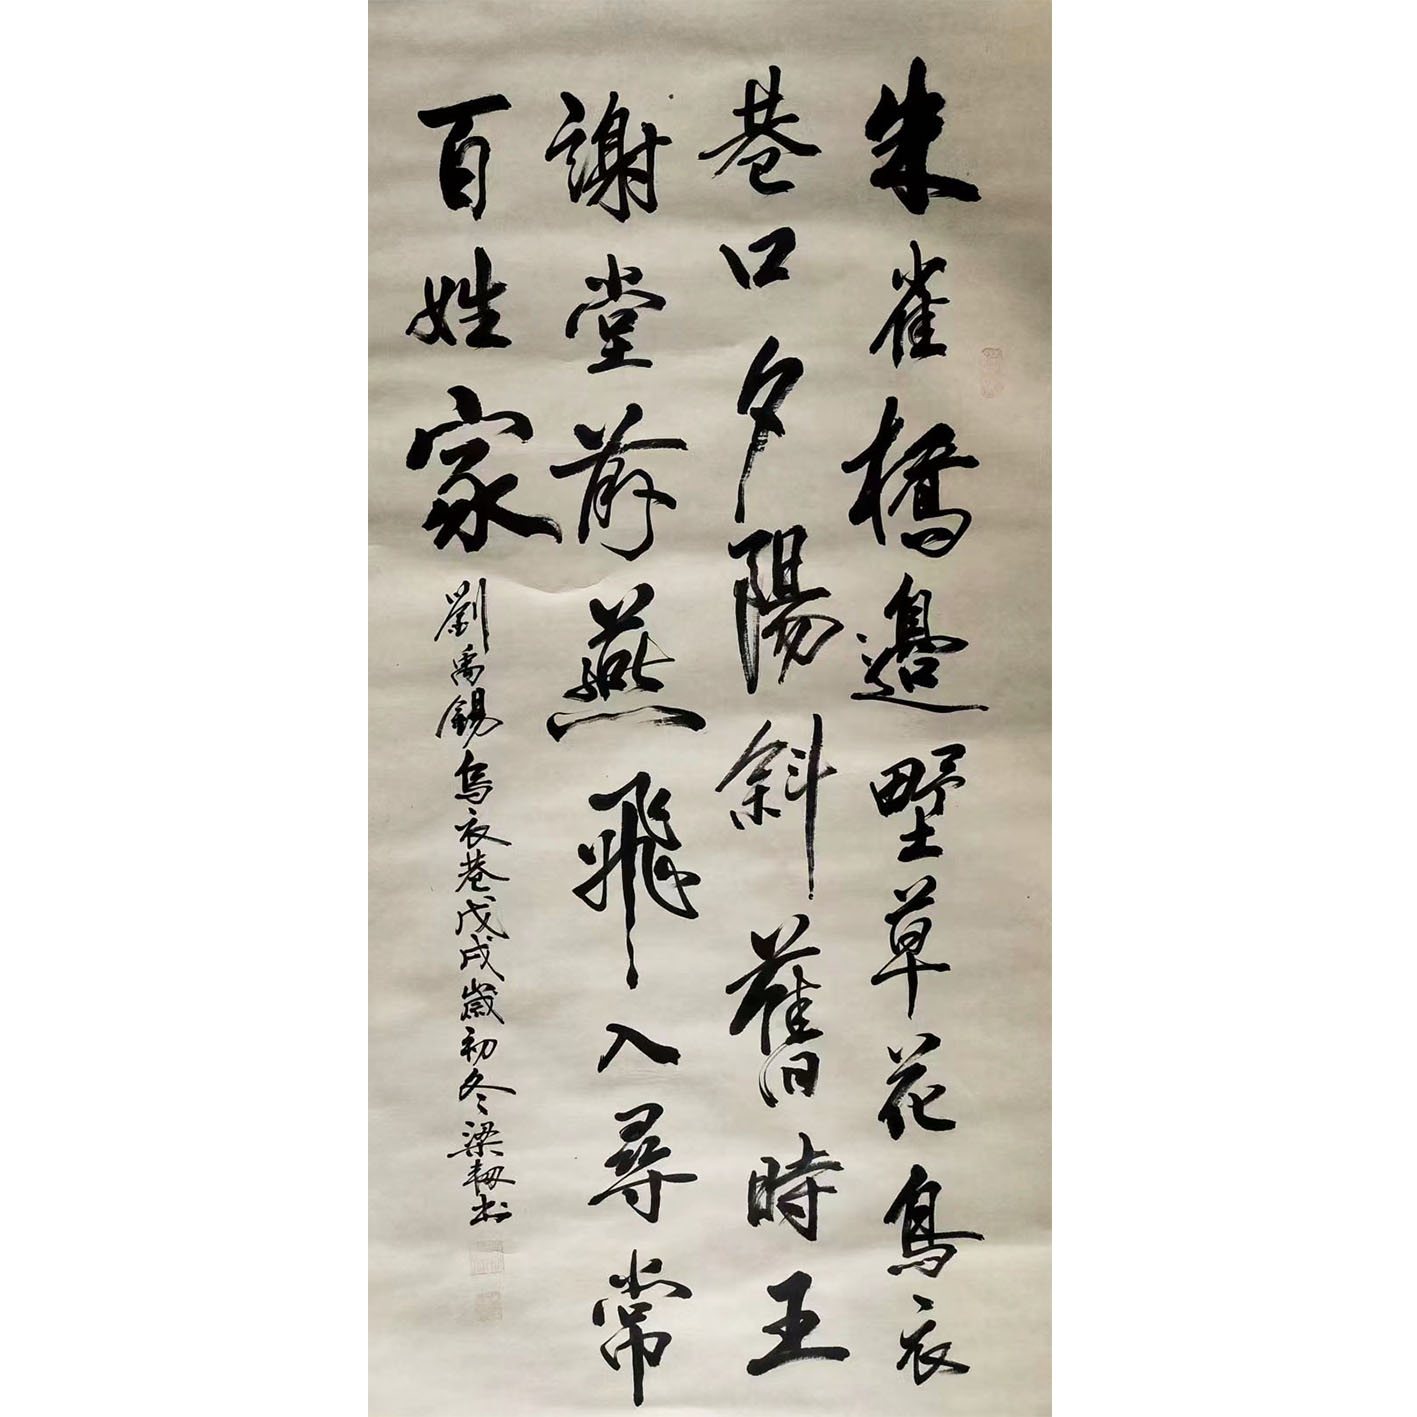 朱雀橋邊野草花烏衣
巷口夕陽斜舊時王
謝堂前燕飛入尋常
百姓家
劉禹錫烏衣巷戊戌歲初冬梁書